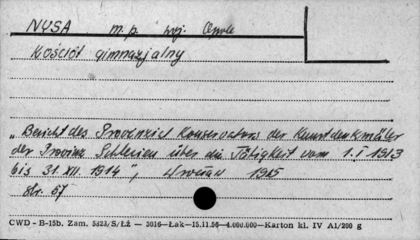 NYSA m.p. woj. Opole
Kościół gimnazjalny
„Bericht des Provinzial Konservators der Kunstdenkmäler
der Provinz Schlesien über die Tätigkeit vom 1.I 1913
bis 31.XII.1914", Wrocław 1915
str. 67
CWD - B-15b. Zam. 5823/S/Łż — 3016—Łak—15.11.56—4.000.000—Karton kl. IV A1/200 g